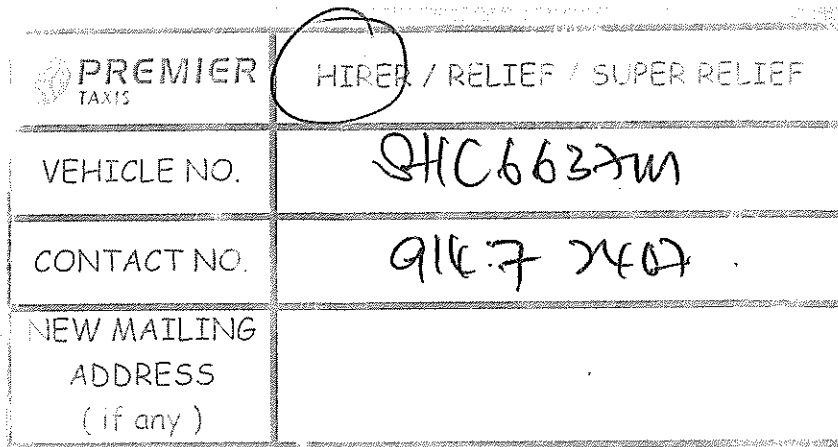 PREMIER HIRER / RELIEF / SUPER RELIEF
TAXIS
VEHICLE NO. SHC6637M
CONTACT NO.
NEW MAILING
ADDRESS
( if any )